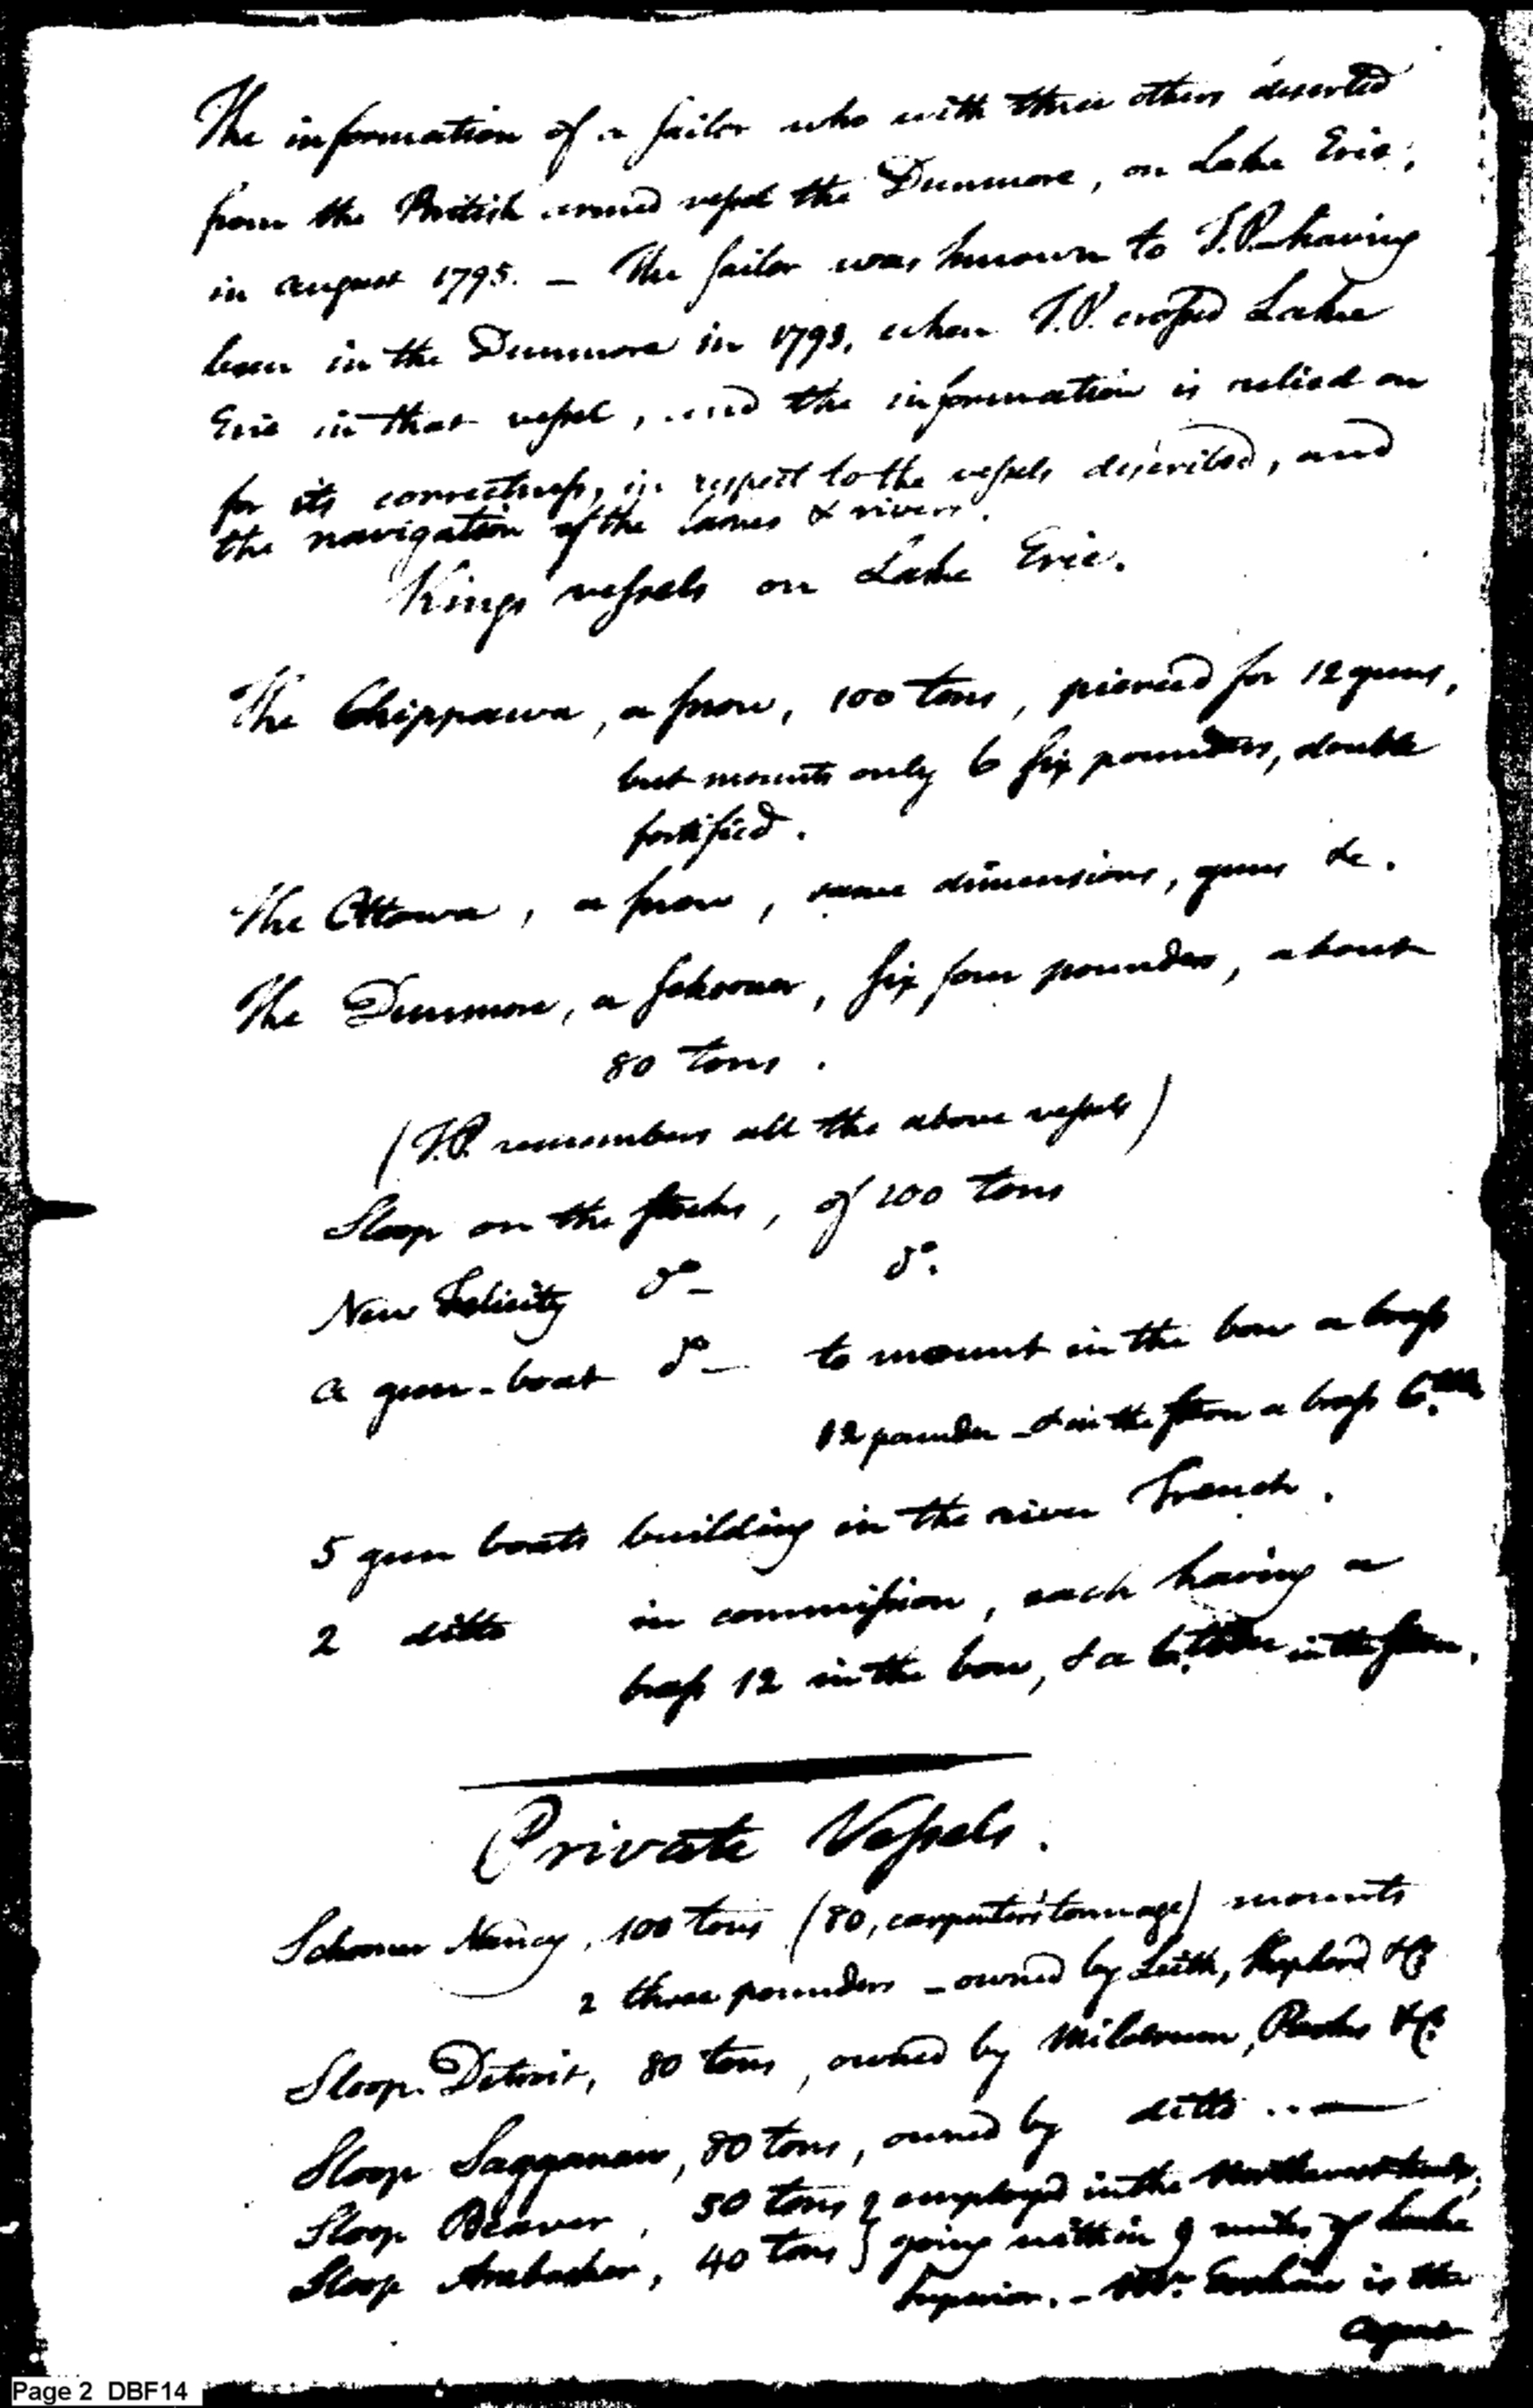 The information of a sailor who with three others deserted
from the British armed vessel the Dunmore, on Lake Erie,
in August 1795. — The sailor was known to T.P. having
been in the Dunmore in 1793, when T.P. crossed Lake
Erie in that vessel, and the information is relied on
for its correctness, in respect to the vessels described, and
the navigation of the lakes & rivers.
Kings vessels on Lake Erie.
The Chippawa, a snow, 100 tons, pierced for 12 guns,
but mounts only 6 six pounders, double
fortified.
The Ottowa, a snow, same dimensions, guns &c.
The Dunmore, a schooner, six four pounders, about
80 tons.
(T.P. remembers all the above vessels)
Sloop on the stocks, of 100 tons
New Felicity do— do.
A gun-boat do— to mount in the bow a brass
12 pounder — & in the stern a brass 6.
5 gun boats building in the river French.
2 ditto in commission, each having a
brass 12 in the bow, & a 6. in the stern.
Private Vessels.
Schooner Nancy, 100 tons (80, carpenter's tonnage) mounts
2 three pounders — owned by Leith, Shepherd & Co
Sloop Detroit, 80 tons, owned by Meldrum, Parks & Co.
Sloop Sagganaw, 80 tons, owned by ditto ..—
Sloop Beaver, 50 tons } employed in the Northwest trade,
Sloop Arabaskar, 40 tons } going within 9 miles of Lake
Superior. — Mr. is the
agent